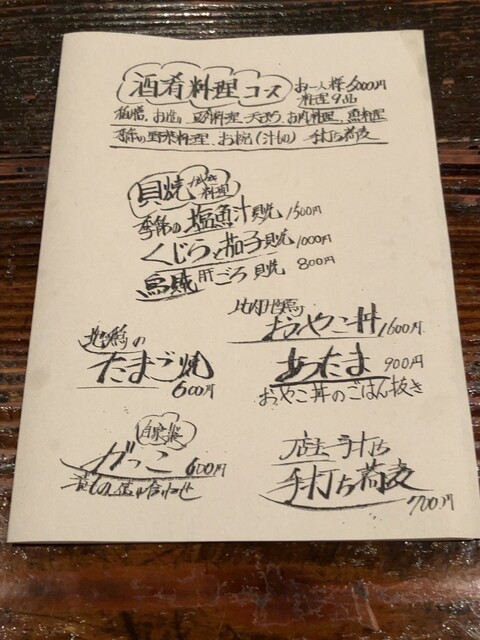 酒肴料理コース お一人様6000円
料理9品
お造り、天ぷら、お肉料理、魚料理
季節の野菜料理、お椀(汁もの) 手打ち蕎麦
貝焼 かやき料理
季節の塩魚汁貝焼 1500円
くじらと茄子貝焼 1000円
烏賊肝ごろ貝焼 800円
比内地鶏
おやこ丼 1600円
地鶏の
たまご焼
600円
あたま 900円
おやこ丼のごはん抜き
自家製
がっこ 600円
漬もの盛り合わせ
店主手打ち
手打ち蕎麦
700円